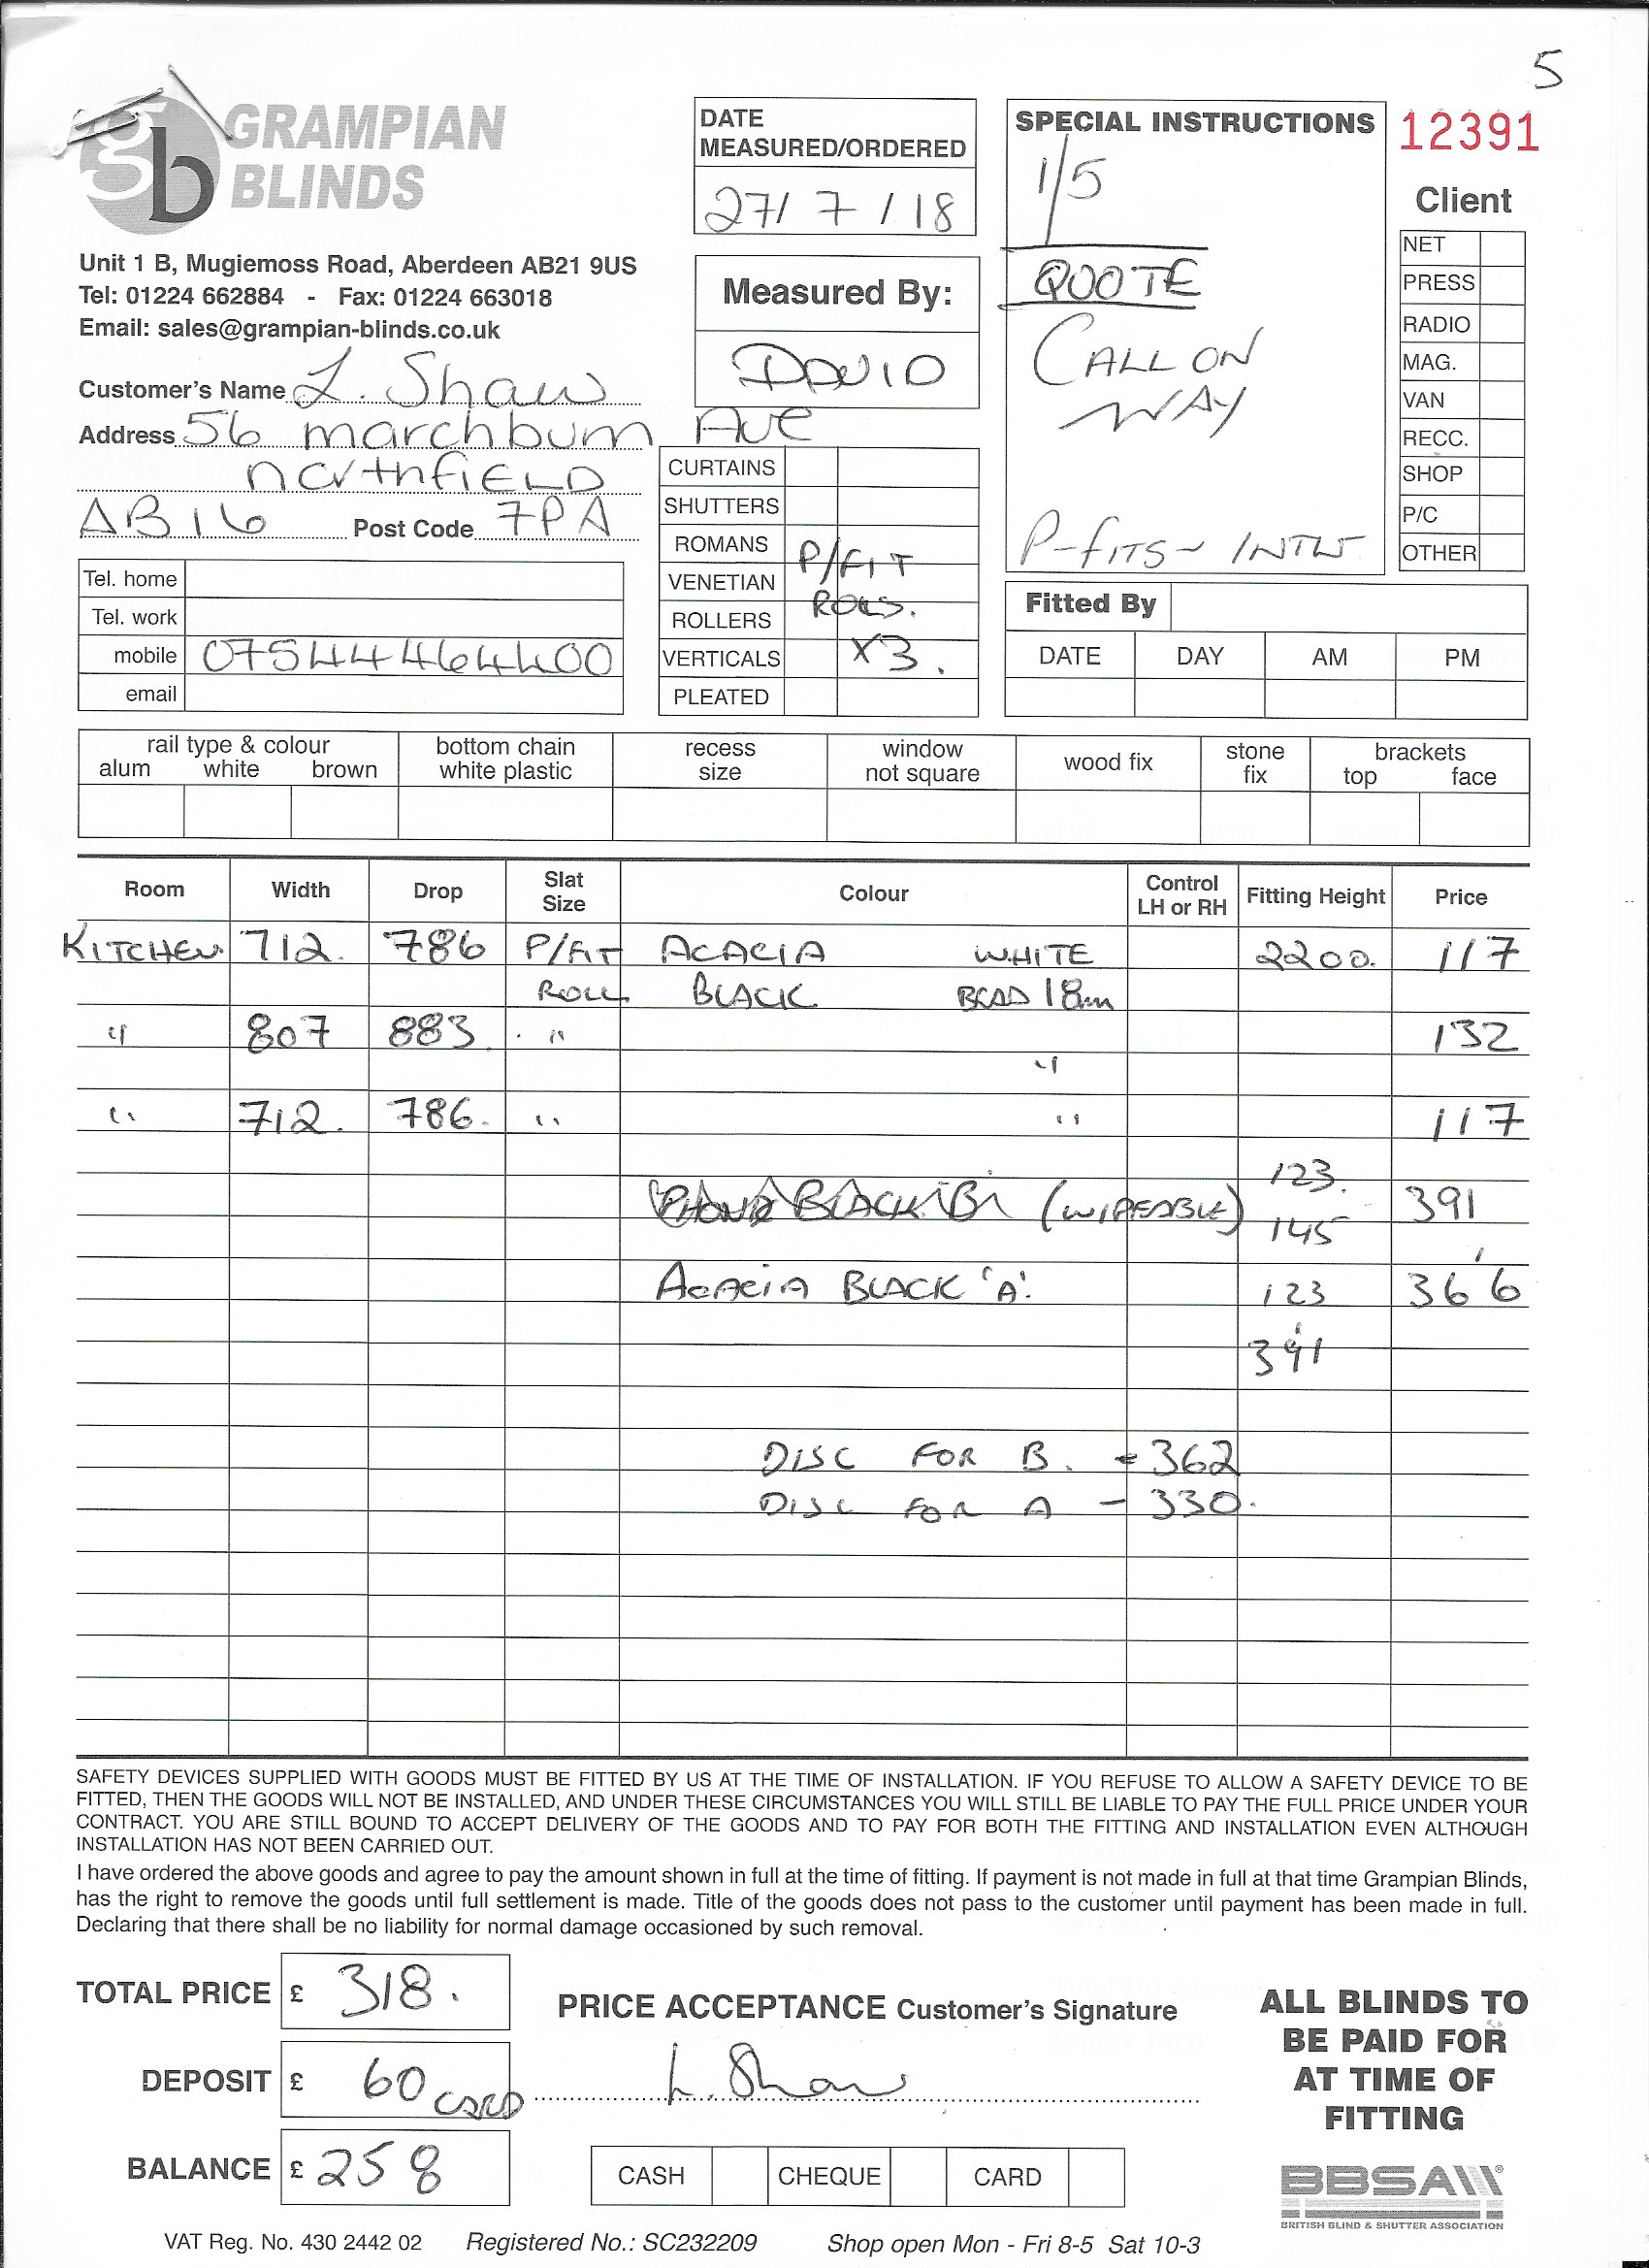 5
GRAMPIAN
BLINDS
Unit 1 B, Mugiemoss Road, Aberdeen AB21 9US
Tel: 01224 662884 - Fax: 01224 663018
Email: sales@grampian-blinds.co.uk
DATE
MEASURED/ORDERED
27/7/18
Measured By:
DAVID
SPECIAL INSTRUCTIONS
1/5
QUOTE
CALL ON
WAY
P-FITS-
12391
Client
NET
PRESS
RADIO
MAG.
VAN
RECC.
SHOP
P/C
OTHER
Customer's Name L. Shaw
Address 56 marchburn Ave
northfIELD
AB16 Post Code 7PA
Tel. home
Tel. work
mobile 07544464400
email
CURTAINS
SHUTTERS
ROMANS P/FIT
VENETIAN
ROLLERS ROLLS.
VERTICALS X3.
PLEATED
Fitted By
DATE DAY AM PM
rail type & colour
alum white brown
bottom chain
white plastic
recess
size
window
not square
wood fix
stone
fix
brackets
top face
Room Width Drop Slat Size Colour Control LH or RH Fitting Height Price
KITCHEN 712. 786 P/FIT ACACIA WHITE 2200. 117
ROLL BLACK BEAD 18mm
" 807 883. " 132
"
" 712. 786. " " 117
123.
BLACK 'B' (WIPEABLE) 391
145
ACACIA BLACK 'A'. 123 366
391
DISC FOR B. = 362
DISC FOR A - 330.
SAFETY DEVICES SUPPLIED WITH GOODS MUST BE FITTED BY US AT THE TIME OF INSTALLATION. IF YOU REFUSE TO ALLOW A SAFETY DEVICE TO BE
FITTED, THEN THE GOODS WILL NOT BE INSTALLED, AND UNDER THESE CIRCUMSTANCES YOU WILL STILL BE LIABLE TO PAY THE FULL PRICE UNDER YOUR
CONTRACT. YOU ARE STILL BOUND TO ACCEPT DELIVERY OF THE GOODS AND TO PAY FOR BOTH THE FITTING AND INSTALLATION EVEN ALTHOUGH
INSTALLATION HAS NOT BEEN CARRIED OUT.
I have ordered the above goods and agree to pay the amount shown in full at the time of fitting. If payment is not made in full at that time Grampian Blinds,
has the right to remove the goods until full settlement is made. Title of the goods does not pass to the customer until payment has been made in full.
Declaring that there shall be no liability for normal damage occasioned by such removal.
TOTAL PRICE £ 318.
DEPOSIT £ 60 CARD
BALANCE £ 258
PRICE ACCEPTANCE Customer's Signature
L. Shaw
CASH CHEQUE CARD
ALL BLINDS TO
BE PAID FOR
AT TIME OF
FITTING
BBSA
BRITISH BLIND & SHUTTER ASSOCIATION
VAT Reg. No. 430 2442 02 Registered No.: SC232209 Shop open Mon - Fri 8-5 Sat 10-3